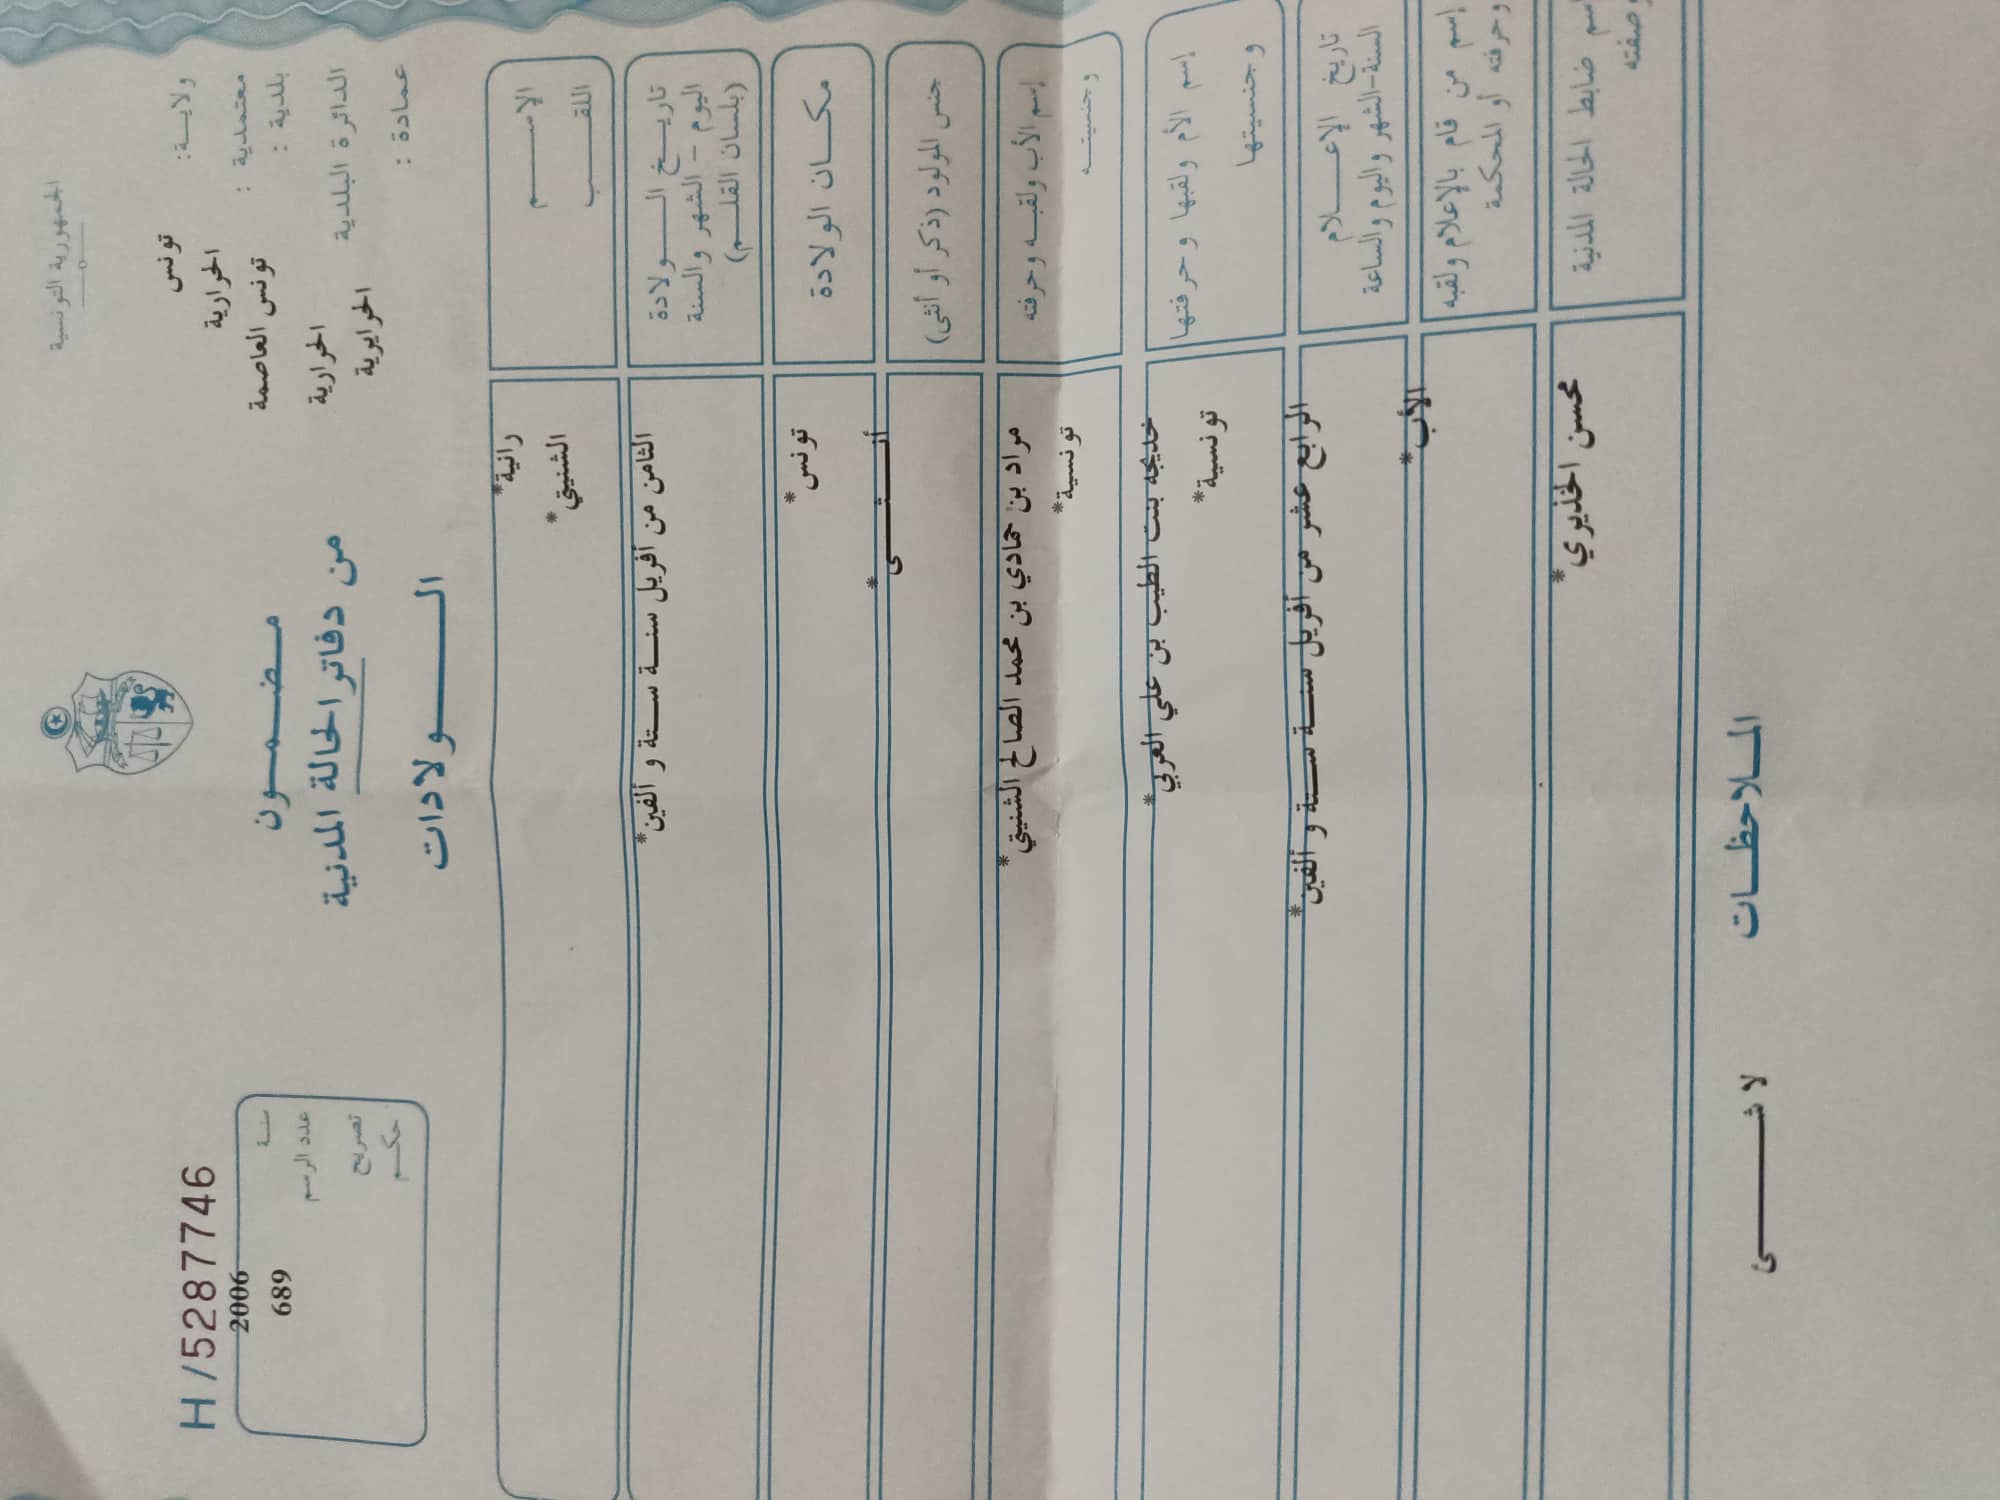 الجمهورية التونسية
ولايـــة: تونس
معتمدية : الحرارية
بلدية : تونس العاصمة
الدائرة البلدية الحرارية
عمادة : الحرايرية
مـــضـــمـــــون
من دفاتر الحالة المدنية
الــــــولادات
H/5287746
سنة 2006
عدد الرسم 689
تصريح
حكـــم
الإســــــم رانية*
اللقـــــب الشنيتي*
تاريـــخ الــــولادة
اليوم – الشهر والسنة
(بلسان القلـــم)
الثامن من أفريل سنـــة ســـتة و ألفين*
مكـــان الولادة
تونس*
جنس المولود (ذكر أو أنثى)
أنـــــثـــــى*
إسم الأب ولقبـــه وحرفته
مراد بن حمادي بن محمد الصالح الشنيتي*
وجنسيتـــه
تونسية*
إسم الأم ولقبها وحرفتها
خديجه بنت الطيب بن علي العربي*
وجنسيتها
تونسية*
تاريخ الإعـــــلام
السنة-الشهر واليوم والساعة
الرابع عشر من أفريل سنـــة ســـتة و ألفين*
إسم من قام بالإعلام ولقبه
وحرفته أو المحكمة
الأب*
إسم ضابط الحالة المدنية
وصفته
محسن الخذيري*
المـــلاحظـــات
لا شـــــــئ